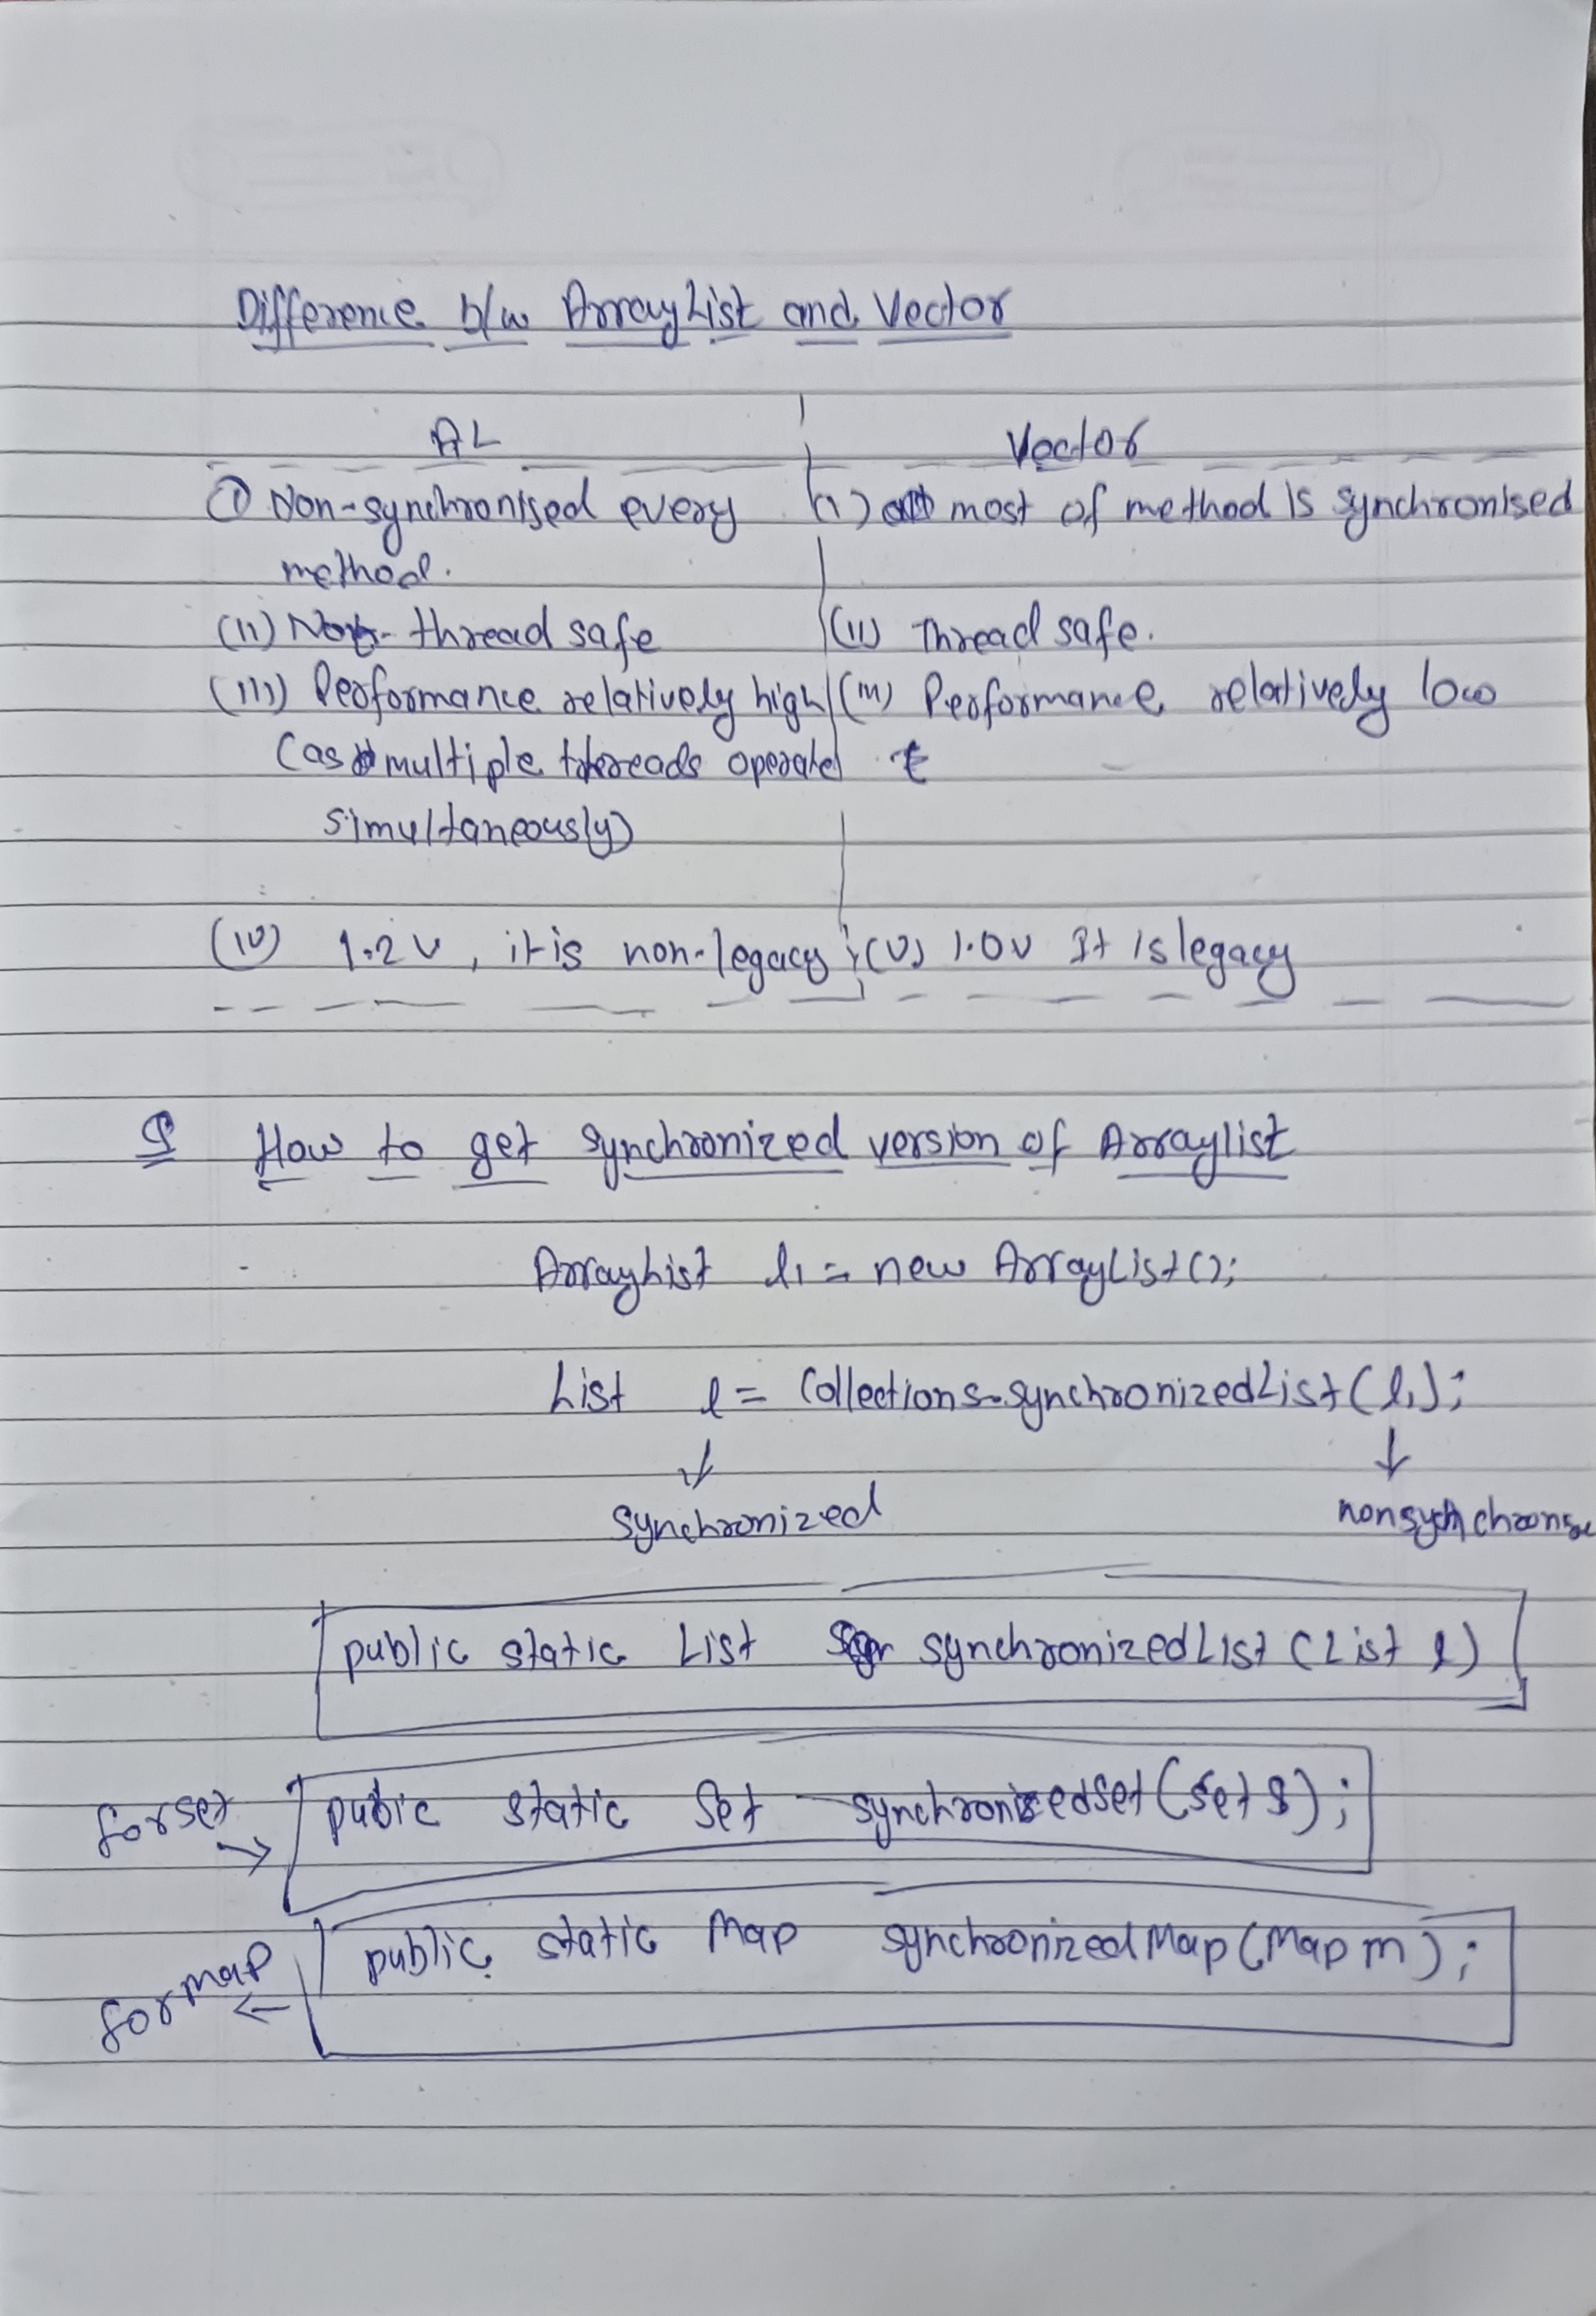 Difference b/w ArrayList and Vector
AL
Vector
(i) Non-synchronised every
method.
(i) most of method is synchronised
(ii) Not- thread safe
(ii) Thread safe.
(iii) Performance relatively high
(as multiple threads operate
simultaneously)
(iii) Performance relatively low
(iv) 1.2 v, it is non-legacy
(v) 1.0v It is legacy
Q How to get synchronized version of Arraylist
ArrayList l1 = new ArrayList();
List l = Collections.synchronizedList(l1);
↓ ↓
synchronized
public static List synchronizedList (List l)
for set → pubic static Set synchronizedset(set s);
for map ← public static Map synchronizedMap(Map m);